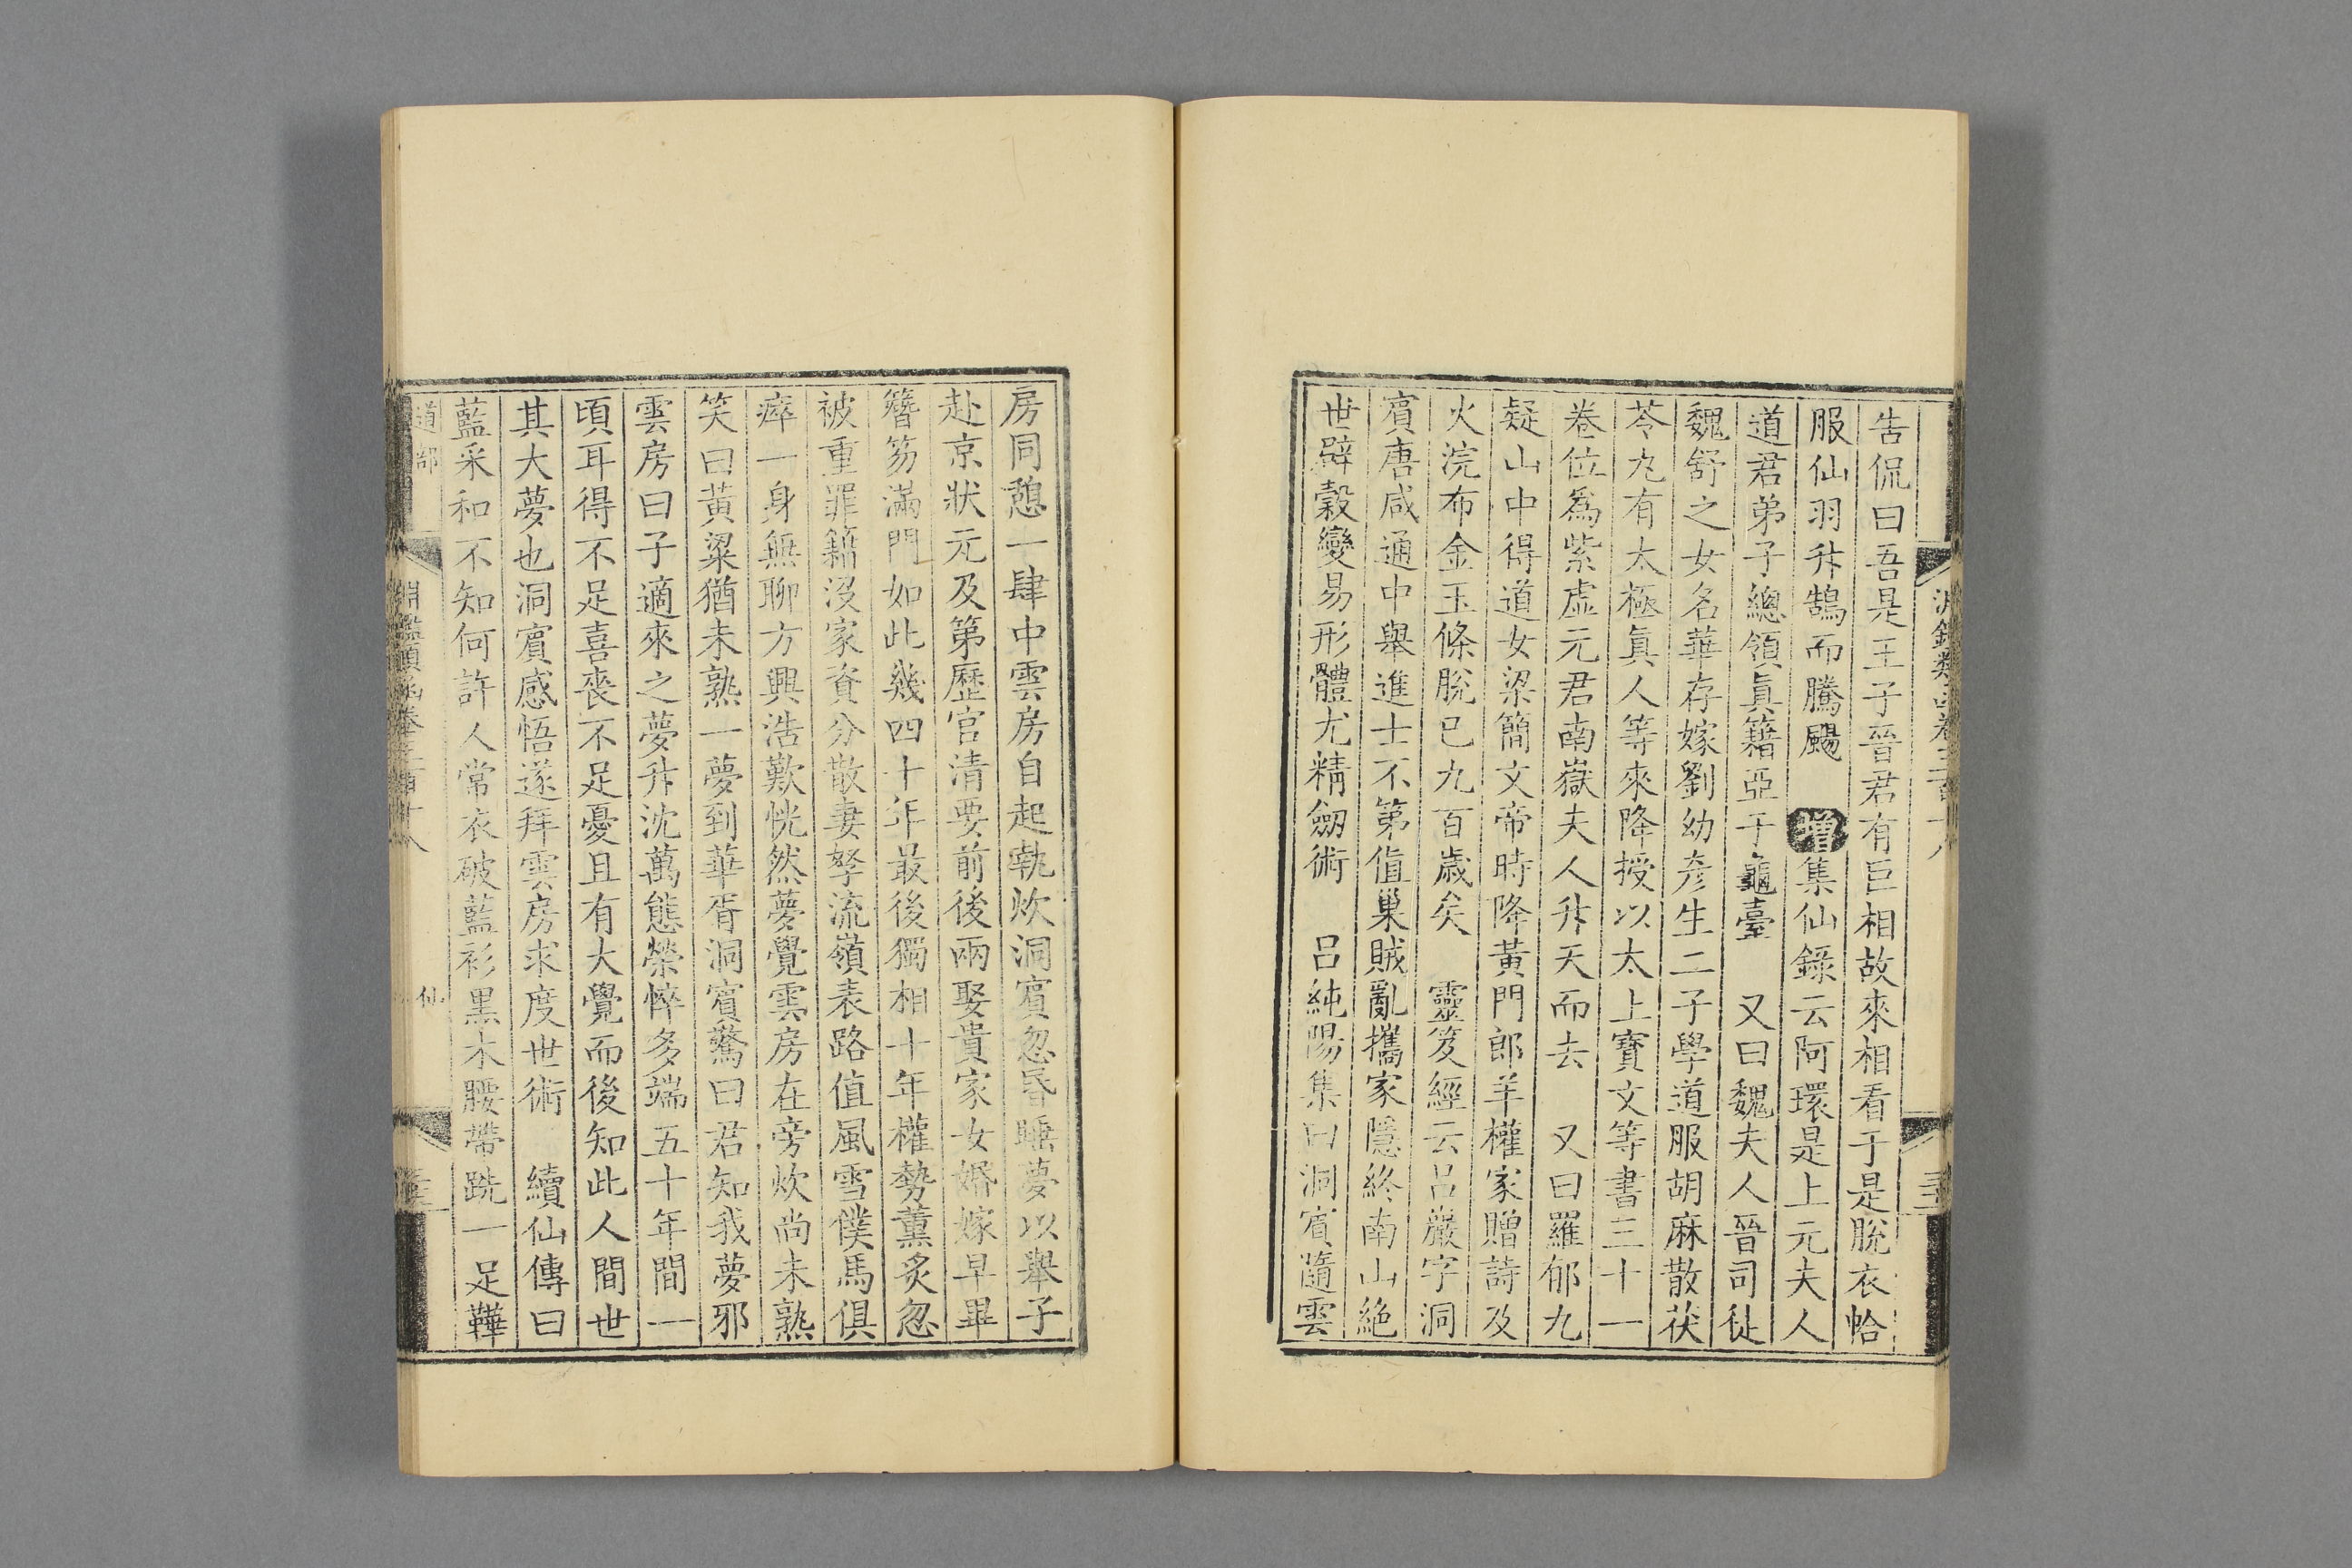 告侃曰吾是王子晉君有巨相故來相看于是脫衣帢
服仙羽升鵠而騰颺　增集仙錄云阿環是上元夫人
道君弟子總領眞籍亞于龜臺　又曰魏夫人晉司徒
魏舒之女名華存嫁劉幼彥生二子學道服胡麻散茯
苓丸有太極眞人等來降授以太上寶文等書三十一
卷位爲紫虛元君南嶽夫人升天而去　又曰羅郁九
疑山中得道女梁簡文帝時降黃門郎羊權家贈詩及
火浣布金玉條脫已九百歲矣　靈笈經云呂巖字洞
賓唐咸通中舉進士不第値巢賊亂攜家隱終南山絶
世辟穀變易形體尤精劒術　呂純陽集曰洞賓隨雲
房同憩一肆中雲房自起執炊洞賓忽昏睡夢以舉子
赴京狀元及第歷官清要前後兩娶貴家女婚嫁早畢
簪笏滿門如此幾四十年最後獨相十年權勢薰炙忽
被重罪籍沒家資分散妻孥流嶺表路值風雪僕馬俱
瘁一身無聊方興浩歎恍然夢覺雲房在旁炊尚未熟
笑曰黃粱猶未熟一夢到華胥洞賓驚曰君知我夢邪
雲房曰子適來之夢升沈萬態榮悴多端五十年間一
頃耳得不足喜喪不足憂且有大覺而後知此人間世
其大夢也洞賓感悟遂拜雲房求度世術　續仙傳曰
藍采和不知何許人常衣破藍衫黑木腰帶跣一足鞾
道部　淵鑑類函卷三百十八　仙